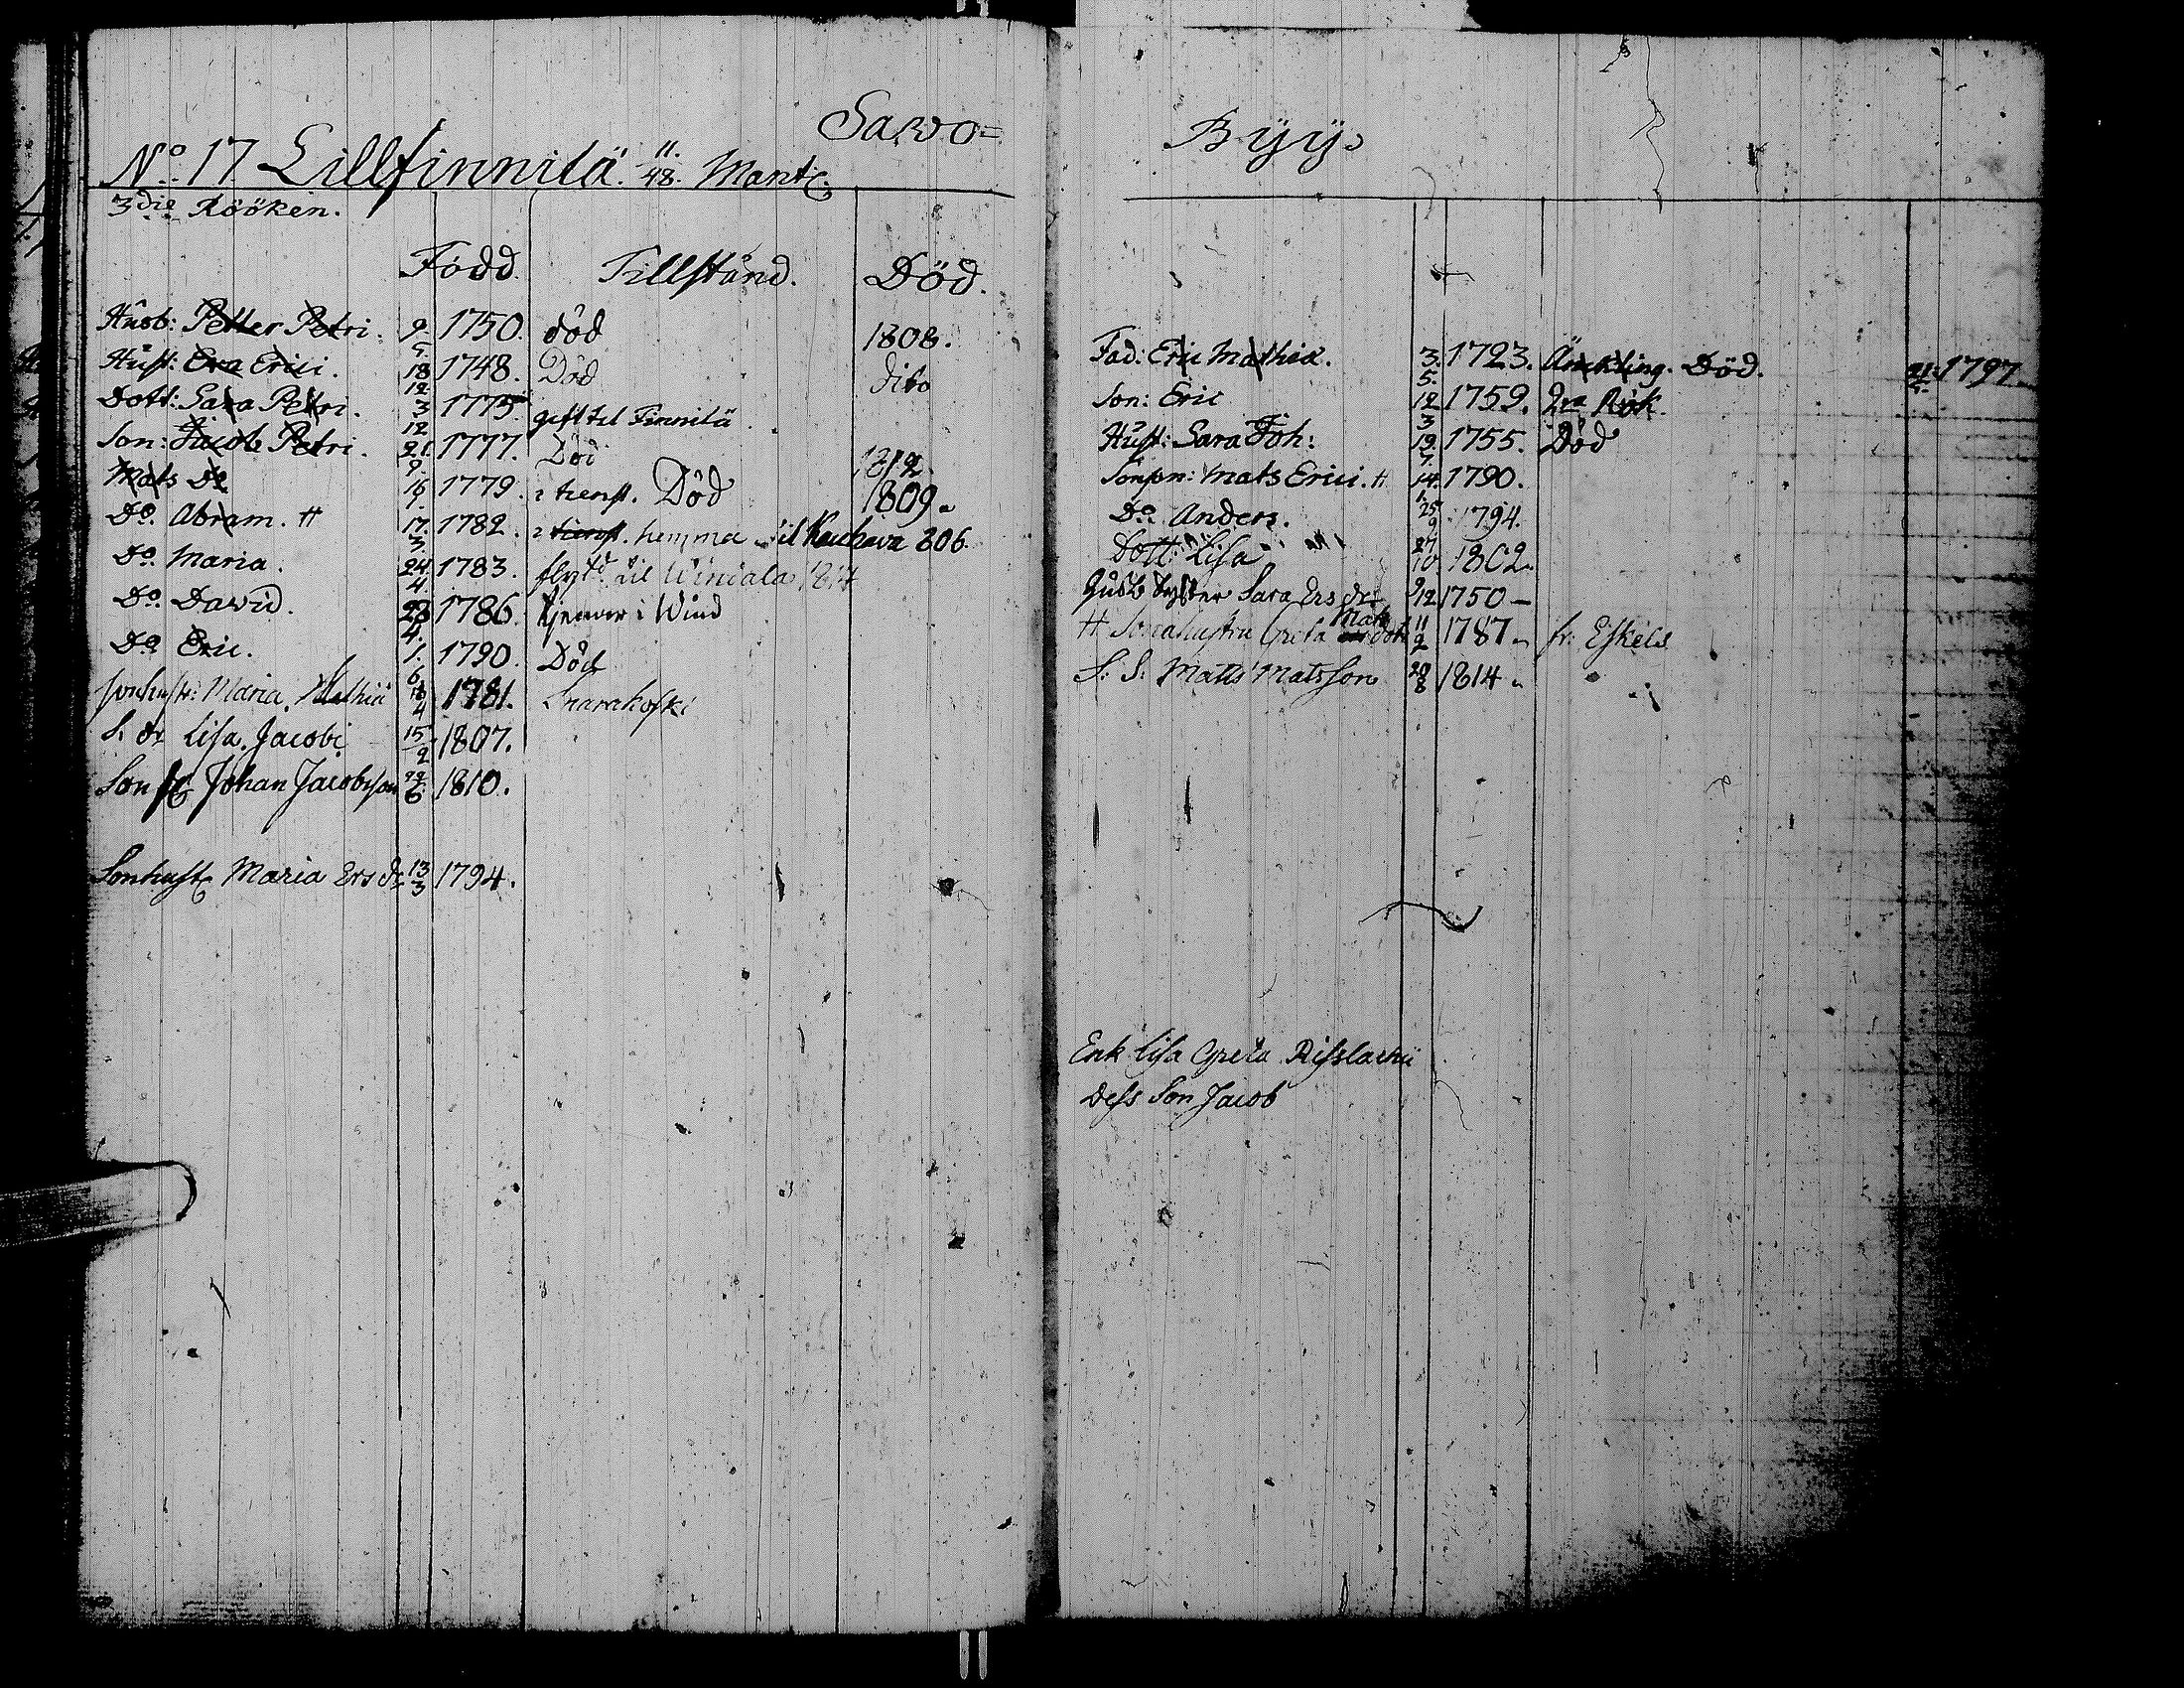 Sawo=
No 17 Lillfinnilä. 11./48. Mantl:
3die Rööken.
Född. Tillstånd. Död.
Husb: Petter Petri. 9/5. 1750. död 1808.
Hust: Eva Erici. 18/12 1748. Död dito
Dott: Sara Petri. 3/12 1775 gift til Finnilä.
Son: Jacob Petri. 21/9. 1777. Död 1812.
Mats Do 16/1. 1779. i tienst. Död 1809.
Do. Abram. # 17./3. 1782. i tienst. hemma til Kauhava 806.
Do. Maria. 24/4. 1783. flytt til Windala 1814
Do. David. 23/4. 1786. tjenar i Wind
Do Eric. 1./6 1790. Död
sonhustr: Maria Mathiæ 18/4 1781. Knarakoski
S. dr Lisa Jacobi 15/2 1807.
Son Johan Jacobsson 22/6 1810.
Sonhust Maria Ers dr 13/3 1794.
Byy.
Fad: Eric Mathiæ. 3./5. 1723. Änkling. Död. 21/ 1797.
Son: Eric 12/3 1759. 2ra Rök.
Hust: Sara Joh: 19./7. 1755. Död
Sonson: Mats Erici. # 14./1. 1790.
Do Anders. 25/9 1794.
Dott: Lisa 27/10 1802.
Husb Syster Sara Ers dr 9/12 1750 –
# Sonahustru Greta Mats dotr 11/2 1787. fr: Eskels
S: S: Matts Matsson 28/8 1814.
Enk Lisa Greta
Dess Son Jacob